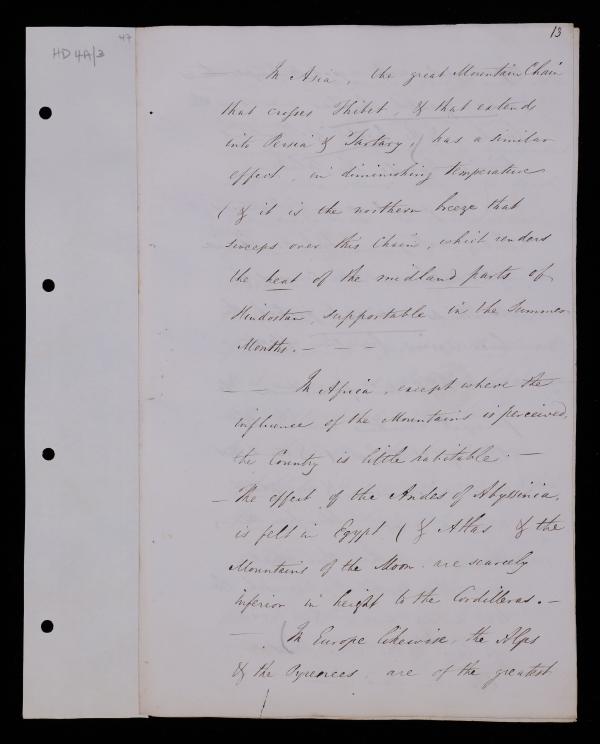 47
HD 4A/3
13
In Asia, the great Mountain Chain
that crosses Thibet, & that extends
into Persia & Tartary,) has a similar
effect, in diminishing temperature
( & it is the northern breeze that
sweeps over this Chain, which renders
the heat of the midland parts of
Hindostan, supportable in the Summer
Months. — — —
— — In Africa, except where the
influence of the Mountains is perceived,
the Country is little habitable. —
— The effect of the Andes of Abyssinia,
is felt in Egypt ( & Atlas & the
Mountains of the Moon are scarcely
inferior in height to the Cordilleras. —
— (In Europe likewise, the Alps
& the Pyrenees, are of the greatest